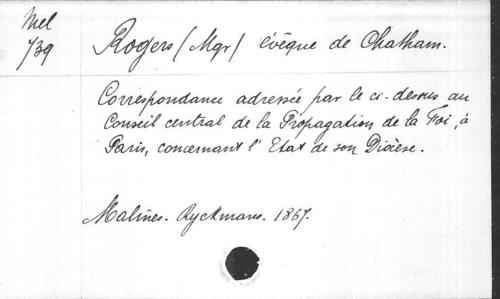 Mel
739
Rogers (Mgr) évêque de Chatham.
Correspondance adressée par le ci-dessus au
Conseil central de la Propagation de la Foi, à
Paris, concernant l'Etat de son Diocèse.
Malines. Ryckmans. 1867.